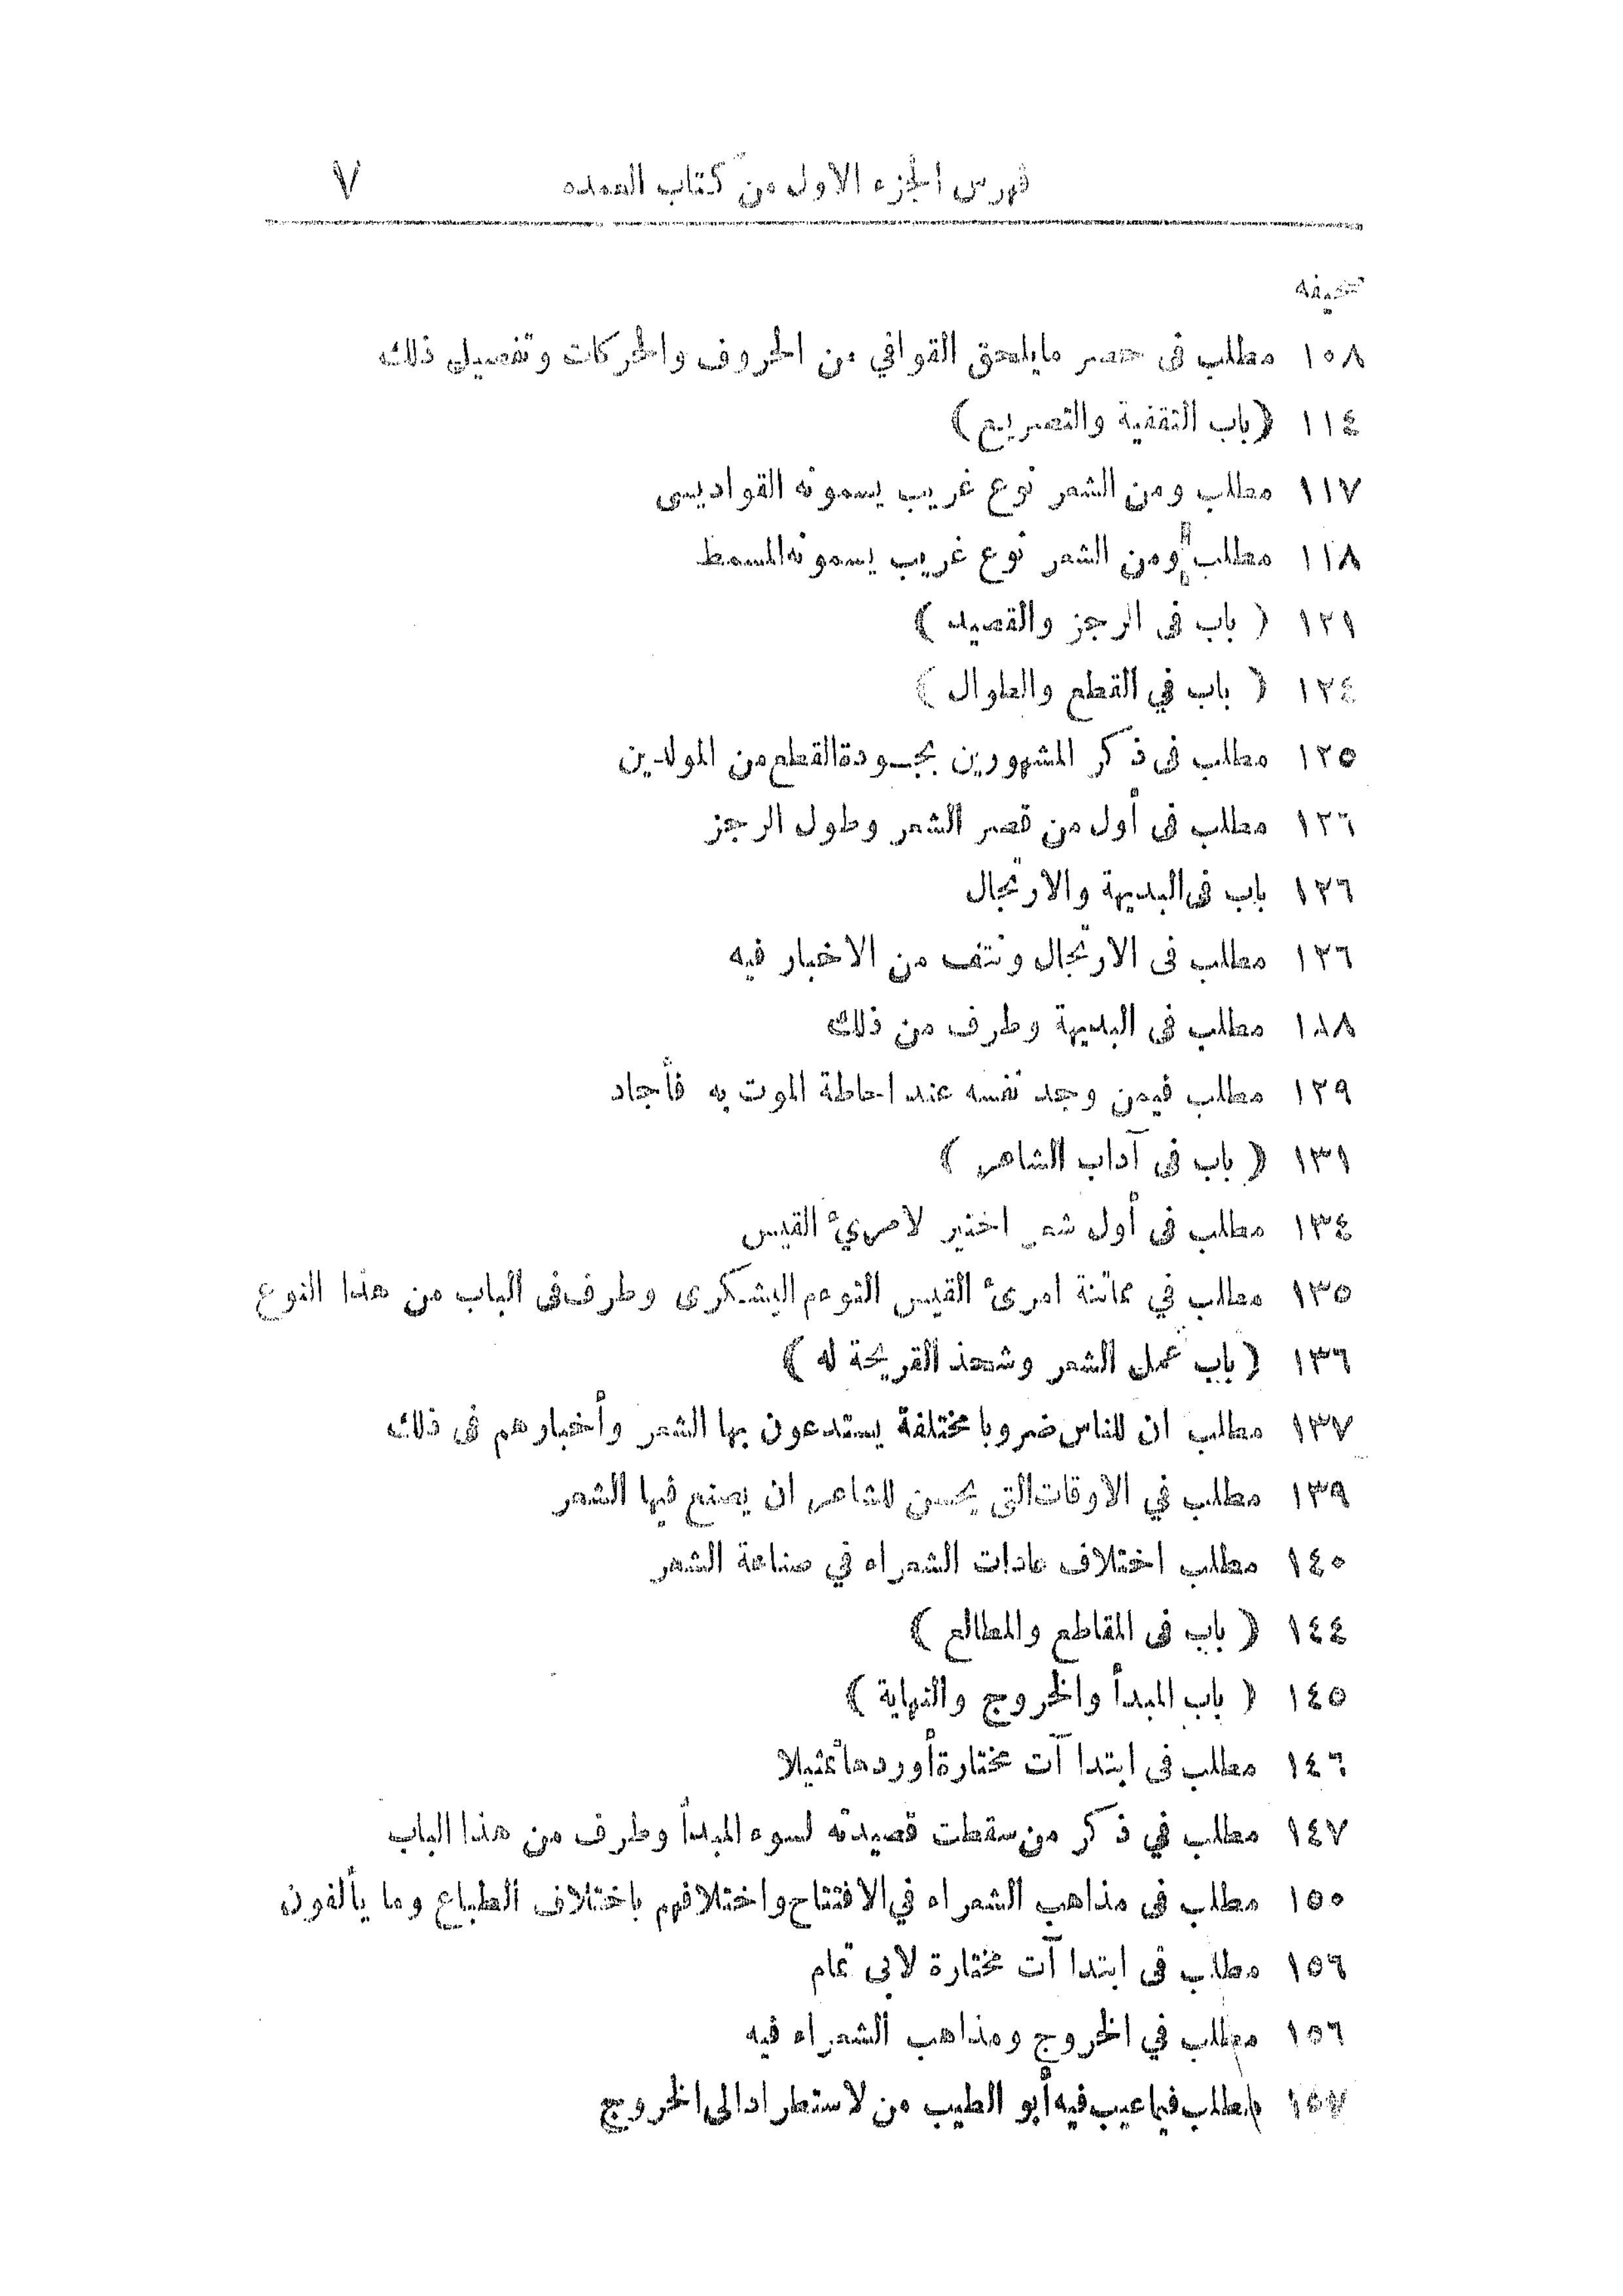 فهرس الجزء الاول من كتاب العمده ٧
صحيفه
١٠٨ مطلب فى حصر مايلحق القوافي من الحروف والحركات وتفصيل ذلك
١١٤ (باب التقفية والتصريع)
١١٧ مطلب ومن الشعر نوع غريب يسمونه القواديسى
١١٨ مطلب ومن الشعر نوع غريب يسمونه المسمط
١٢١ ( باب فى الرجز والقصيد )
١٢٤ ( باب في القطع والطوال )
١٢٥ مطلب فى ذكر المشهورين بجودة القطع من المولدين
١٢٦ مطلب فى أول من قصر الشعر وطول الرجز
١٢٦ باب فى البديهة والارتجال
١٢٦ مطلب فى الارتجال ونتف من الاخبار فيه
١٨٨ مطلب فى البديهة وطرف من ذلك
١٢٩ مطلب فيمن وجد نفسه عند احاطة الموت به فأجاد
١٣١ ( باب فى آداب الشاعر )
١٣٤ مطلب فى أول شعر اختير لامريء القيس
١٣٥ مطلب في مماتنة امرئ القيس التوءم اليشكرى وطرف فى الباب من هذا النوع
١٣٦ (باب عمل الشعر وشحذ القريحة له )
١٣٧ مطلب ان للناس ضروبا مختلفة يستدعون بها الشعر وأخبارهم فى ذلك
١٣٩ مطلب في الاوقات التى يحسن للشاعر ان يصنع فيها الشعر
١٤٠ مطلب اختلاف عادات الشعراء في صناعة الشعر
١٤٤ ( باب فى المقاطع والمطالع )
١٤٥ ( باب المبدأ والخروج والنهاية )
١٤٦ مطلب فى ابتدا آت مختارة أوردها تمثيلا
١٤٧ مطلب في ذكر من سقطت قصيدته لسوء المبدأ وطرف من هذا الباب
١٥٠ مطلب فى مذاهب الشعراء في الافتتاح واختلافهم باختلاف الطباع وما يألفون
١٥٦ مطلب فى ابتدا آت مختارة لابى تمام
١٥٦ مطلب في الخروج ومذاهب الشعراء فيه
١٥٧ مطلب فيما عيب فيه أبو الطيب من لاستطراد الى الخروج